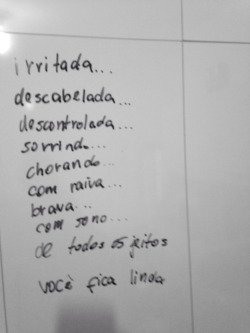 irritada...
descabelada...
descontrolada...
sorrindo...
chorando...
com raiva...
brava...
com sono...
de todos os jeitos
você fica linda